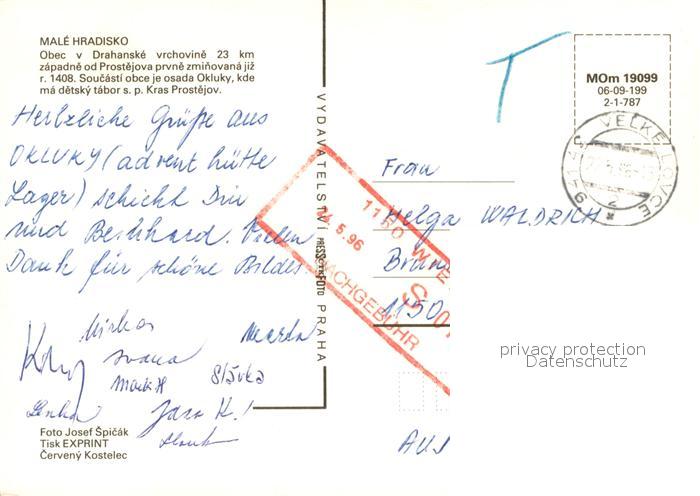 MALÉ HRADISKO
Obec v Drahanské vrchovině 23 km
západně od Prostějova prvně zmiňovaná již
r. 1408. Součástí obce je osada Okluky, kde
má dětský tábor s. p. Kras Prostějov.
Herbzliche Grüße aus
OKLUKY (advent hütte
Lager) schickt Dir
und Bernhard. Vielen
Dank für schöne Bilder.
Mirka
Marta
Ivana
Slávka
Lenka
Jara K.!
Foto Josef Špičák
Tisk EXPRINT
Červený Kostelec
VYDAVATELSTVÍ PRESSFOTO PRAHA
MOm 19099
06-09-199
2-1-787
VEĽKÉ LOVCE
T
1150 WIE
5.96
NACHGEBÜHR
S
Frau
Helga WALDRICH
1150
privacy protection
Datenschutz